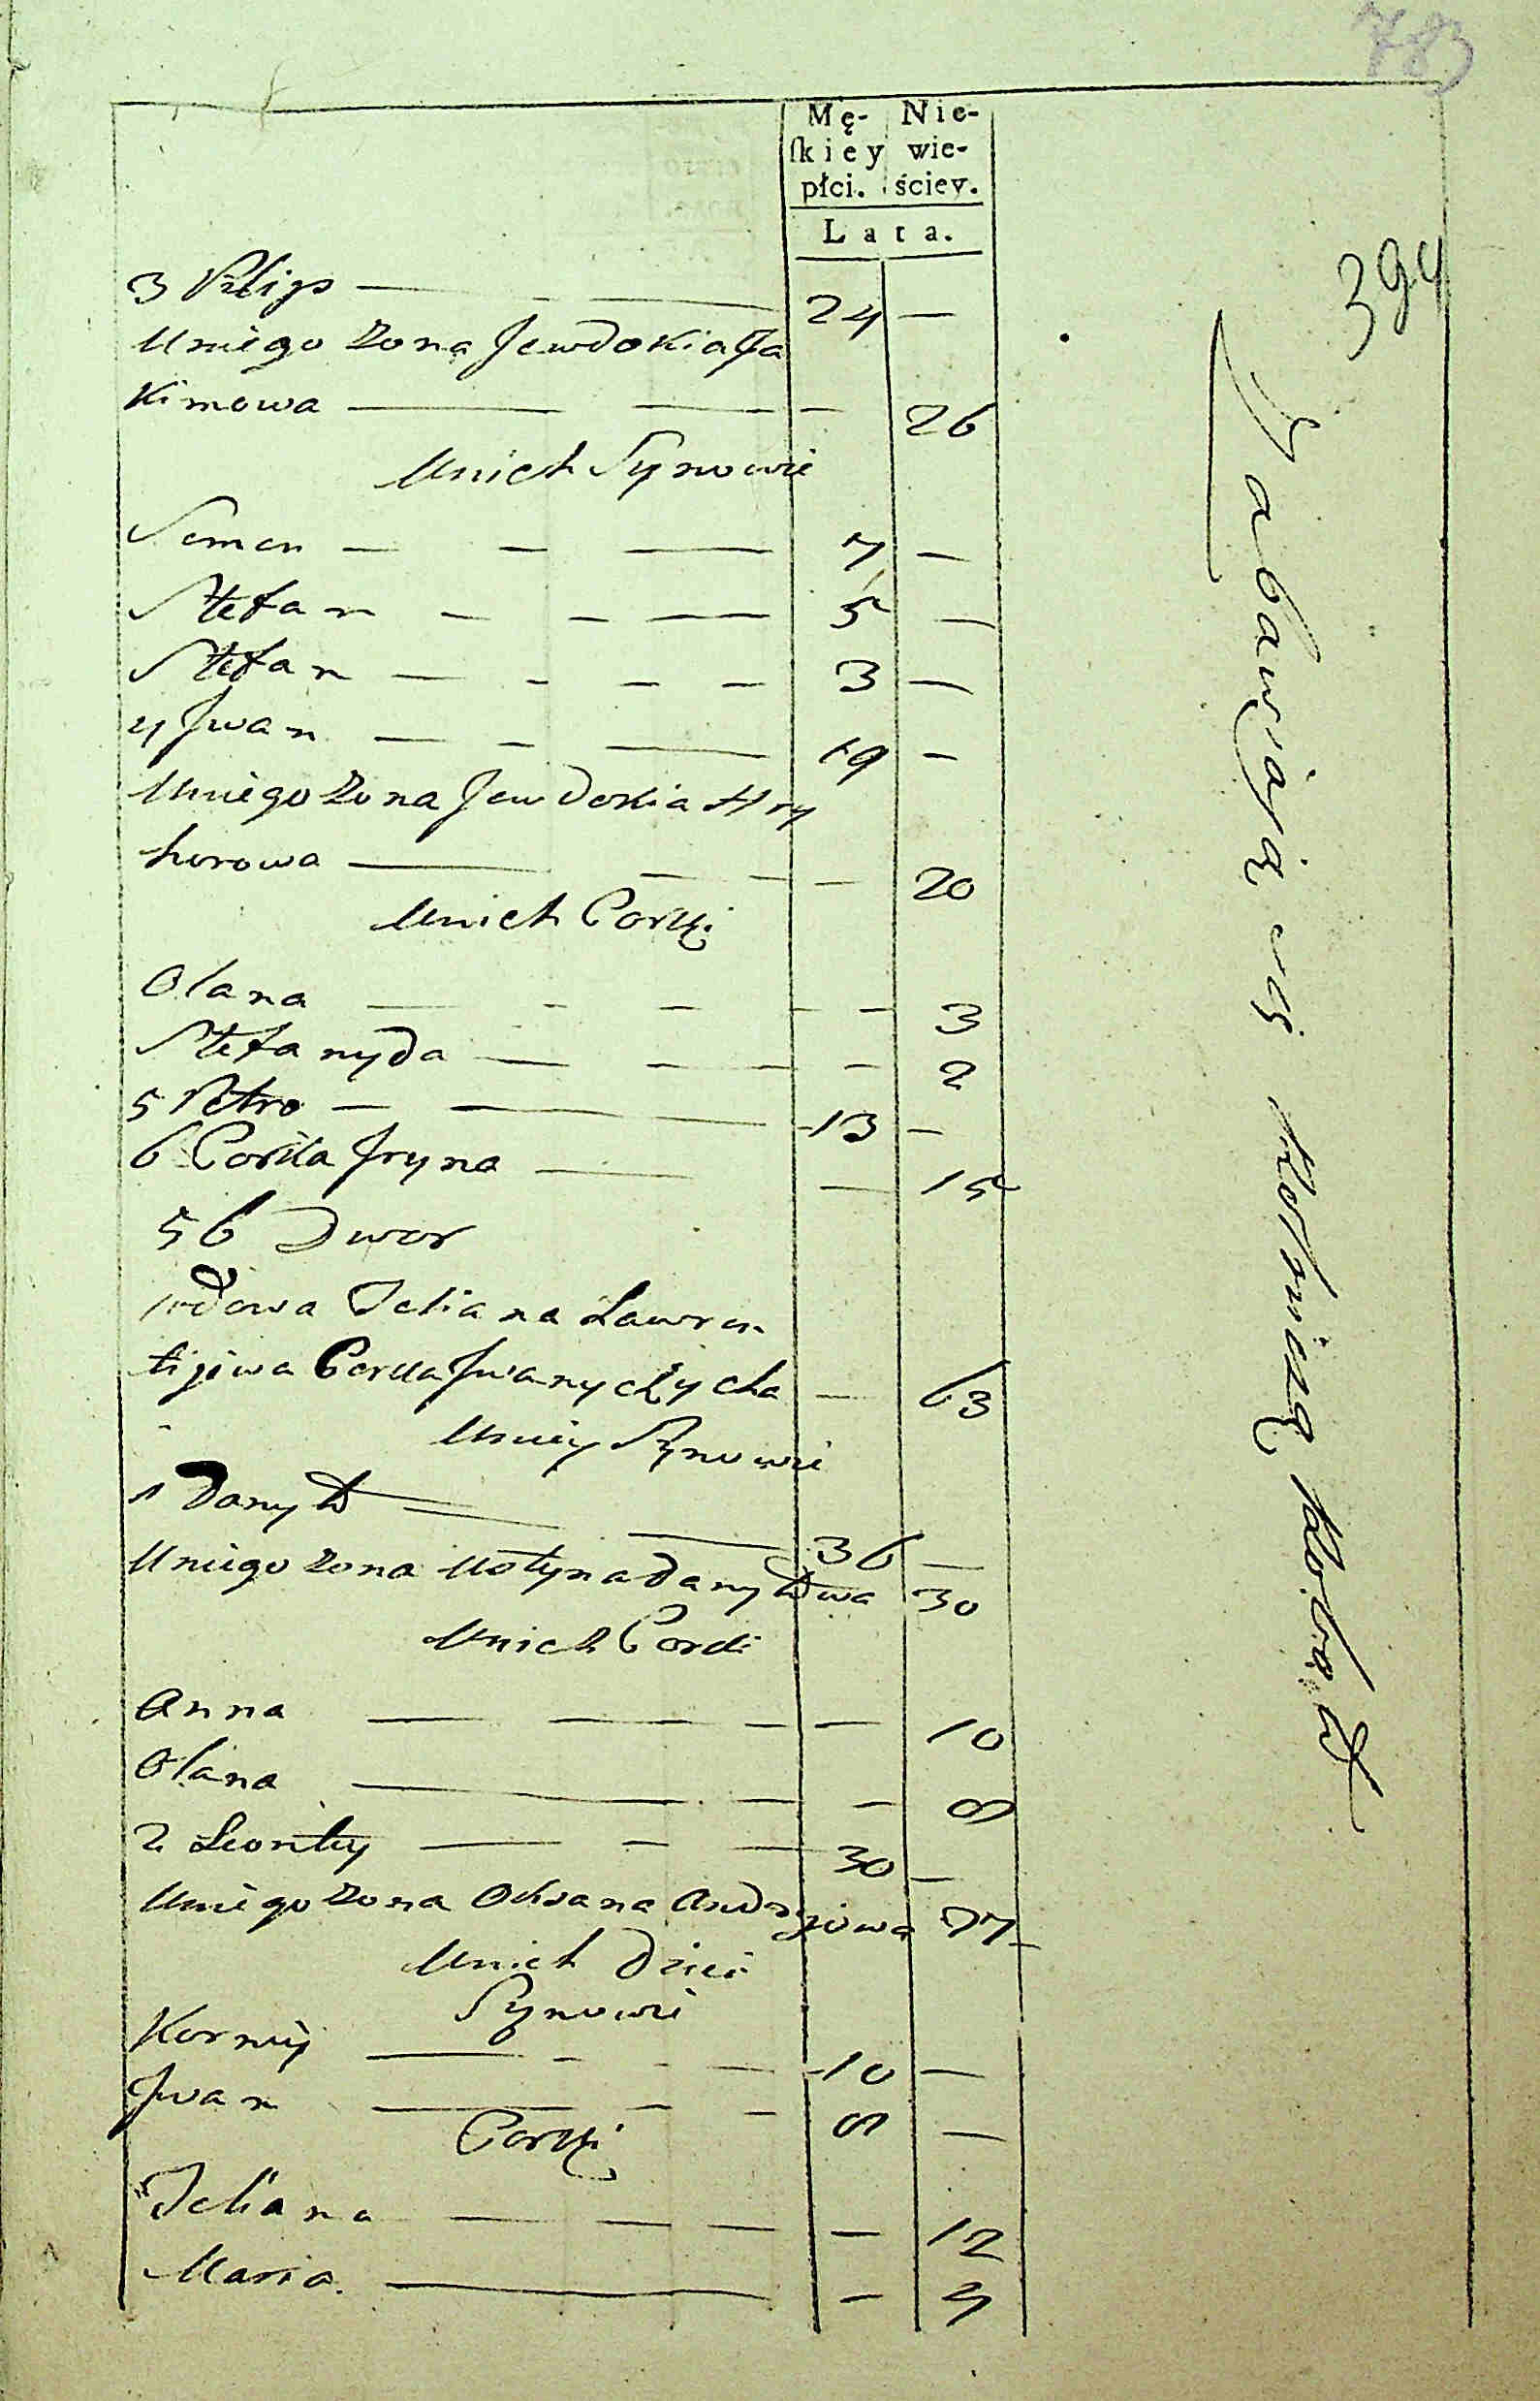 783
Mę- Nie-
ſkiey wie-
płci. ściey.
Lata.
394
3 Pylip — 24 —
Uniego Zona Jewdokia Ja
kimowa — — 26
Unich Synowie
Semen — 7 —
Stefan — 5 —
Stefan — 3 —
4 Jwan — 19 —
Uniego Zona Jewdokia Hry
horowa — — 20
Unich Corki
Olana — — 3
Stefanyda — — 2
5 Petro — 13 —
6 Corka Jryna — — 15
56 Dwor
wdowa Teliana Lawren
tijiwa Corka Jwanyczycha — 63
Uniey Synowie
1 Danyło — 36 —
Uniego Zona Motyna Danyłowa 30
Unich Corki
Anna — — 10
Olana — — 8
2 Leonty — 30 —
Uniego Zona Oksana Andryiowa
Unich Dzieci
Synowie
Korniy — 10 —
Jwan — 8 —
Corki
Teliana — — 12
Maria. — —
Zabawiaią się Rolniczą Robotą